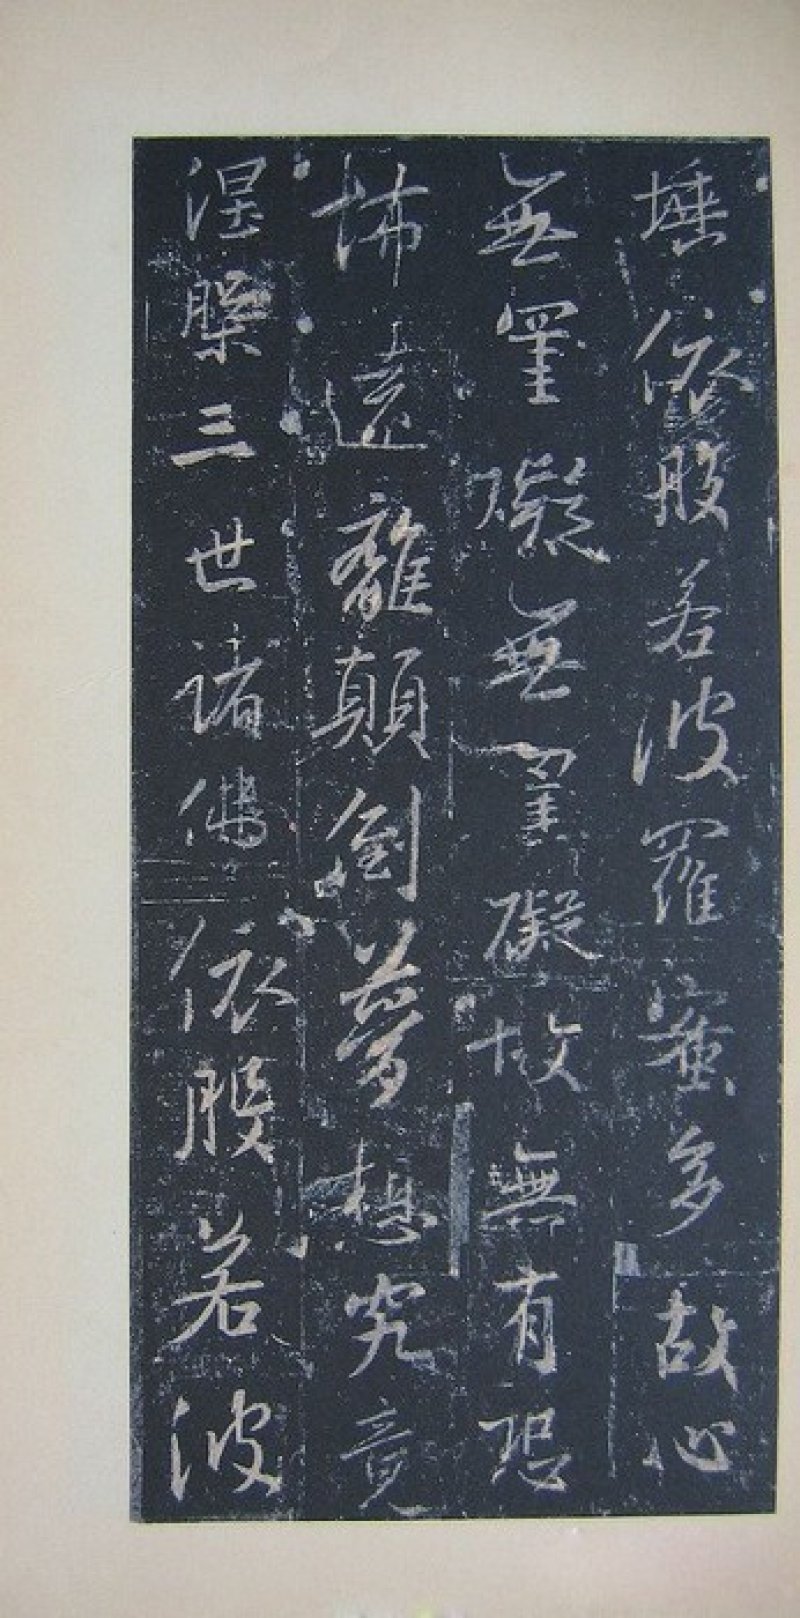 埵依般若波羅蜜多故心
無罣礙無罣礙故無有恐
怖遠離顛倒夢想究竟
涅槃三世諸佛依般若波